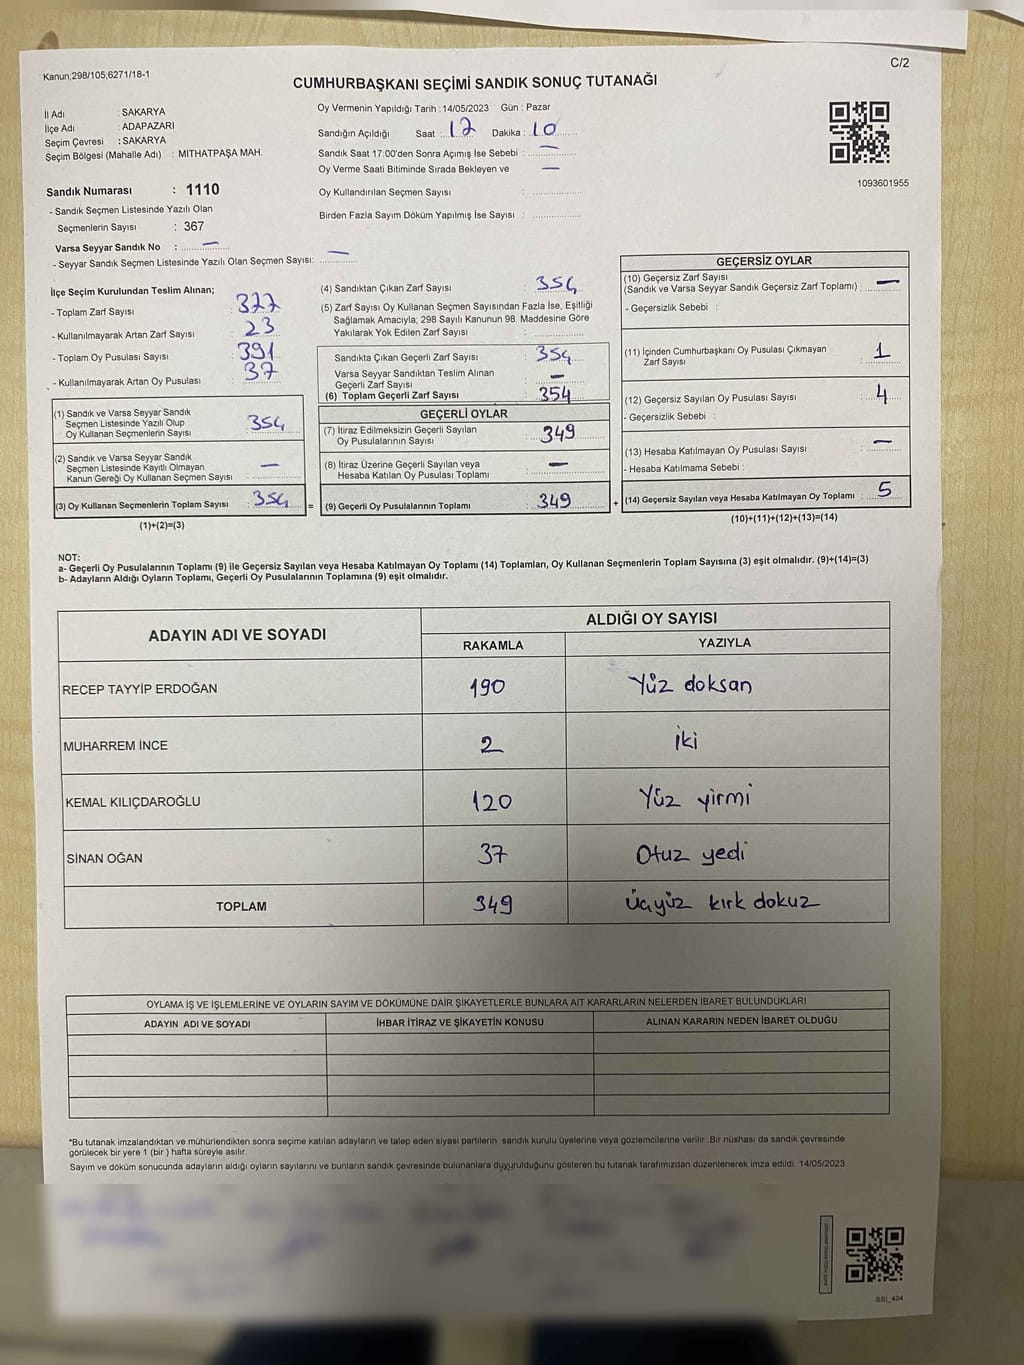 Kanun;298/105,6271/18-1
C/2
CUMHURBAŞKANI SEÇİMİ SANDIK SONUÇ TUTANAĞI
İl Adı : SAKARYA
İlçe Adı : ADAPAZARI
Seçim Çevresi : SAKARYA
Seçim Bölgesi (Mahalle Adı) : MİTHATPAŞA MAH.
Sandık Numarası : 1110
- Sandık Seçmen Listesinde Yazılı Olan
Seçmenlerin Sayısı : 367
Varsa Seyyar Sandık No : —
- Seyyar Sandık Seçmen Listesinde Yazılı Olan Seçmen Sayısı: —
Oy Vermenin Yapıldığı Tarih : 14/05/2023 Gün : Pazar
Sandığın Açıldığı Saat : 17 Dakika : 10
Sandık Saat 17:00'den Sonra Açımış İse Sebebi : —
Oy Verme Saati Bitiminde Sırada Bekleyen ve —
Oy Kullandırılan Seçmen Sayısı :
Birden Fazla Sayım Döküm Yapılmış İse Sayısı :
1093601955
İlçe Seçim Kurulundan Teslim Alınan;
- Toplam Zarf Sayısı : 377
- Kullanılmayarak Artan Zarf Sayısı : 23
- Toplam Oy Pusulası Sayısı : 391
- Kullanılmayarak Artan Oy Pusulası : 37
(1) Sandık ve Varsa Seyyar Sandık
Seçmen Listesinde Yazılı Olup
Oy Kullanan Seçmenlerin Sayısı : 354
(2) Sandık ve Varsa Seyyar Sandık
Seçmen Listesinde Kayıtlı Olmayan
Kanun Gereği Oy Kullanan Seçmen Sayısı : —
(3) Oy Kullanan Seçmenlerin Toplam Sayısı : 354 =
(1)+(2)=(3)
(4) Sandıktan Çıkan Zarf Sayısı : 354
(5) Zarf Sayısı Oy Kullanan Seçmen Sayısından Fazla İse, Eşitliği
Sağlamak Amacıyla; 298 Sayılı Kanunun 98. Maddesine Göre
Yakılarak Yok Edilen Zarf Sayısı :
Sandıkta Çıkan Geçerli Zarf Sayısı : 354
Varsa Seyyar Sandıktan Teslim Alınan
Geçerli Zarf Sayısı : —
(6) Toplam Geçerli Zarf Sayısı : 354
GEÇERLİ OYLAR
(7) İtiraz Edilmeksizin Geçerli Sayılan
Oy Pusulalarının Sayısı : 349
(8) İtiraz Üzerine Geçerli Sayılan veya
Hesaba Katılan Oy Pusulası Toplamı : —
(9) Geçerli Oy Pusulalarının Toplamı : 349 +
GEÇERSİZ OYLAR
(10) Geçersiz Zarf Sayısı
(Sandık ve Varsa Seyyar Sandık Geçersiz Zarf Toplamı) : —
- Geçersizlik Sebebi :
(11) İçinden Cumhurbaşkanı Oy Pusulası Çıkmayan
Zarf Sayısı : 1
(12) Geçersiz Sayılan Oy Pusulası Sayısı : 4
- Geçersizlik Sebebi :
(13) Hesaba Katılmayan Oy Pusulası Sayısı : —
- Hesaba Katılmama Sebebi :
(14) Geçersiz Sayılan veya Hesaba Katılmayan Oy Toplamı : 5
(10)+(11)+(12)+(13)=(14)
NOT:
a- Geçerli Oy Pusulalarının Toplamı (9) ile Geçersiz Sayılan veya Hesaba Katılmayan Oy Toplamı (14) Toplamları, Oy Kullanan Seçmenlerin Toplam Sayısına (3) eşit olmalıdır. (9)+(14)=(3)
b- Adayların Aldığı Oyların Toplamı, Geçerli Oy Pusulalarının Toplamına (9) eşit olmalıdır.
ADAYIN ADI VE SOYADI
ALDIĞI OY SAYISI
RAKAMLA YAZIYLA
RECEP TAYYİP ERDOĞAN 190 Yüz doksan
MUHARREM İNCE 2 iki
KEMAL KILIÇDAROĞLU 120 Yüz yirmi
SİNAN OĞAN 37 Otuz yedi
TOPLAM 349 Üçyüz kırk dokuz
OYLAMA İŞ VE İŞLEMLERİNE VE OYLARIN SAYIM VE DÖKÜMÜNE DAİR ŞİKAYETLERLE BUNLARA AİT KARARLARIN NELERDEN İBARET BULUNDUKLARI
ADAYIN ADI VE SOYADI İHBAR İTİRAZ VE ŞİKAYETİN KONUSU ALINAN KARARIN NEDEN İBARET OLDUĞU
*Bu tutanak imzalandıktan ve mühürlendikten sonra seçime katılan adayların ve talep eden siyasi partilerin sandık kurulu üyelerine veya gözlemcilerine verilir. Bir nüshası da sandık çevresinde
görülecek bir yere 1 (bir) hafta süreyle asılır.
Sayım ve döküm sonucunda adayların aldığı oyların sayılarını ve bunların sandık çevresinde bulunanlara duyurulduğunu gösteren bu tutanak tarafımızdan düzenlenerek imza edildi. 14/05/2023